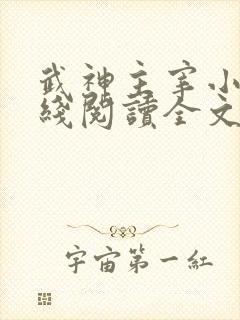 武神主宰小
綫閱讀全文
宇宙第一紅